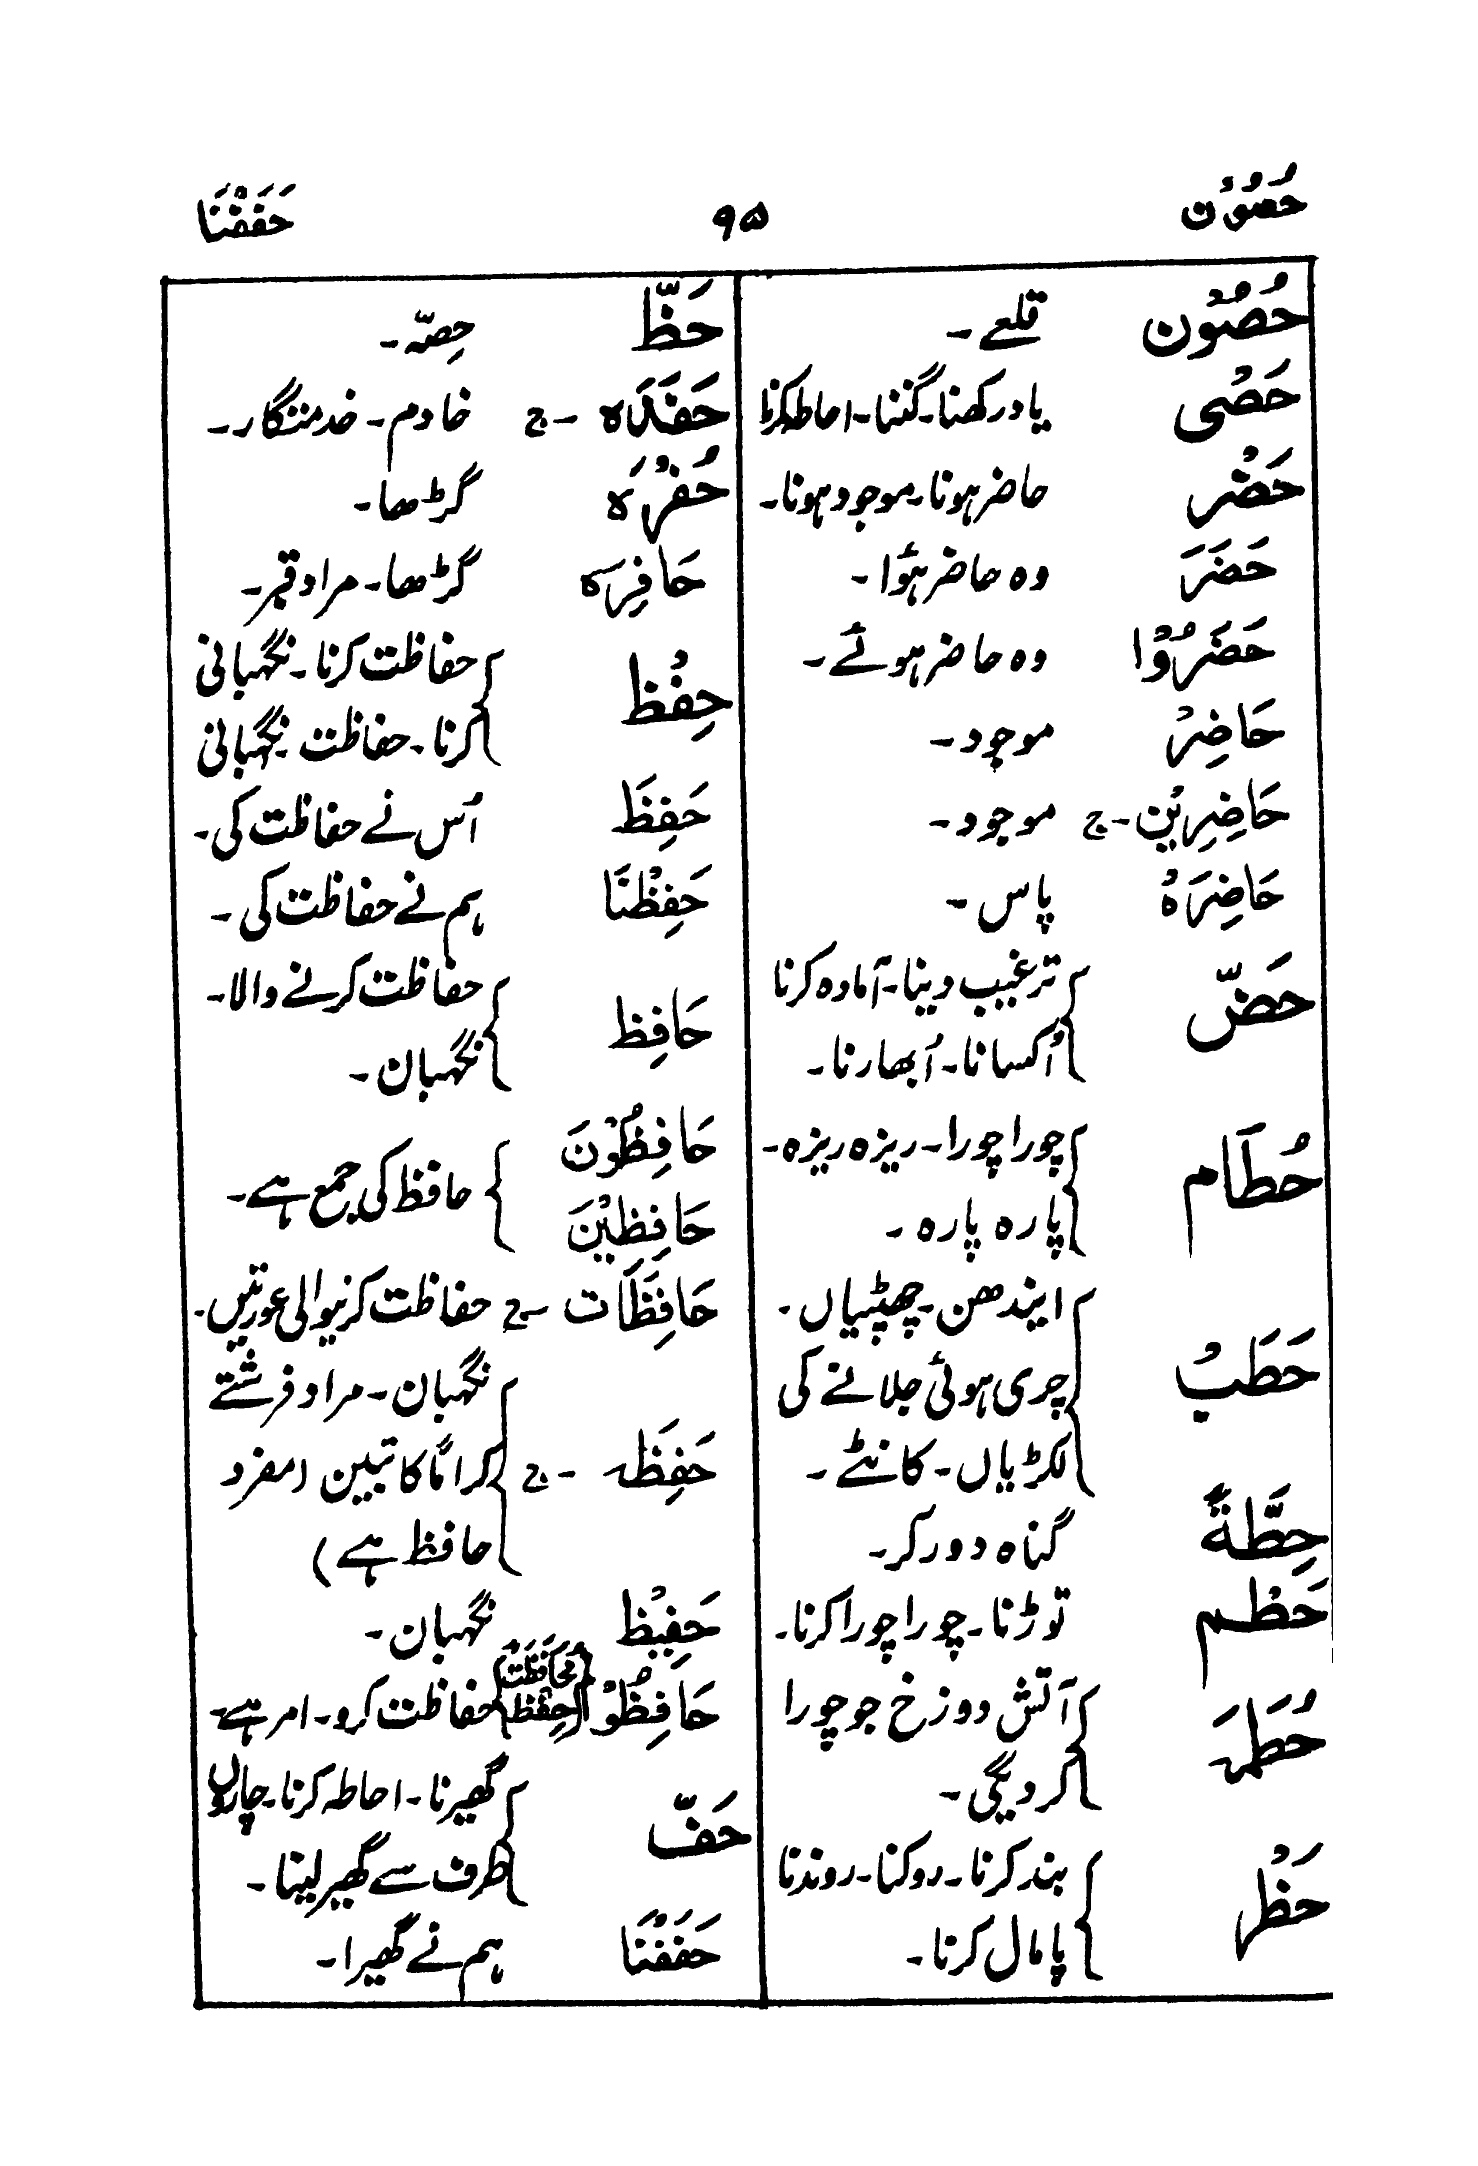 حُصُوْن ۹۵ حَفَفْنَا
حُصُوْن قلعے۔
حَصْی یاد رکھنا۔ گننا۔ احاطہ کرنا
حَضْر حاضر ہونا۔ موجود ہونا۔
حَضَرَ وہ حاضر ہؤا۔
حَضَرُوْا وہ حاضر ہوئے۔
حَاضِرْ موجود۔
حَاضِرِیْن ۔ج موجود۔
حَاضِرَہْ پاس۔
حَضّ ترغیب دینا۔ آمادہ کرنا
اُکسانا۔ اُبھارنا۔
حُطَام چورا چورا۔ ریزہ ریزہ۔
پارہ پارہ۔
حَطَبْ ایندھن۔ چھپٹیاں۔
چری ہوئی جلانے کی
لکڑیاں۔ کانٹے۔
حِطَّةٌ گناہ دور کر۔
حَطْم توڑنا۔ چورا چورا کرنا۔
حُطَمَہ آتش دوزخ جو چورا
کر دیگی۔
حَظْر بند کرنا۔ روکنا۔ روندنا
پامال کرنا۔
حَظّ حِصّہ۔
حَفَدَہ ۔ج خادم۔ خدمتگار۔
حُفْرَہ گڑھا۔
حَافِرَہ گڑھا۔ مراد قبر۔
حِفْظ حفاظت کرنا۔ نگہبانی
کرنا۔ حفاظت۔ نگہبانی
حَفِظَ اُس نے حفاظت کی۔
حَفِظْنَا ہم نے حفاظت کی۔
حَافِظ حفاظت کرنے والا۔
نگہبان۔
حَافِظُوْنَ
حَافِظِیْنَ حافظ کی جمع ہے۔
حَافِظَات ۔ج حفاظت کرنیوالی عورتیں۔
حَفِظَہ ۔ج نگہبان۔ مراد فرشتے
کراماً کاتبین (مفرد
حافظ ہے)
حَفِیْظ نگہبان۔
حَافِظُوْا (مُحَافَظَت حِفْظ) حفاظت کرو۔ امر ہے۔
حَفّ گھیرنا۔ احاطہ کرنا۔ چاروں
طرف سے گھیر لینا۔
حَفَفْنَا ہم نے گھیرا۔